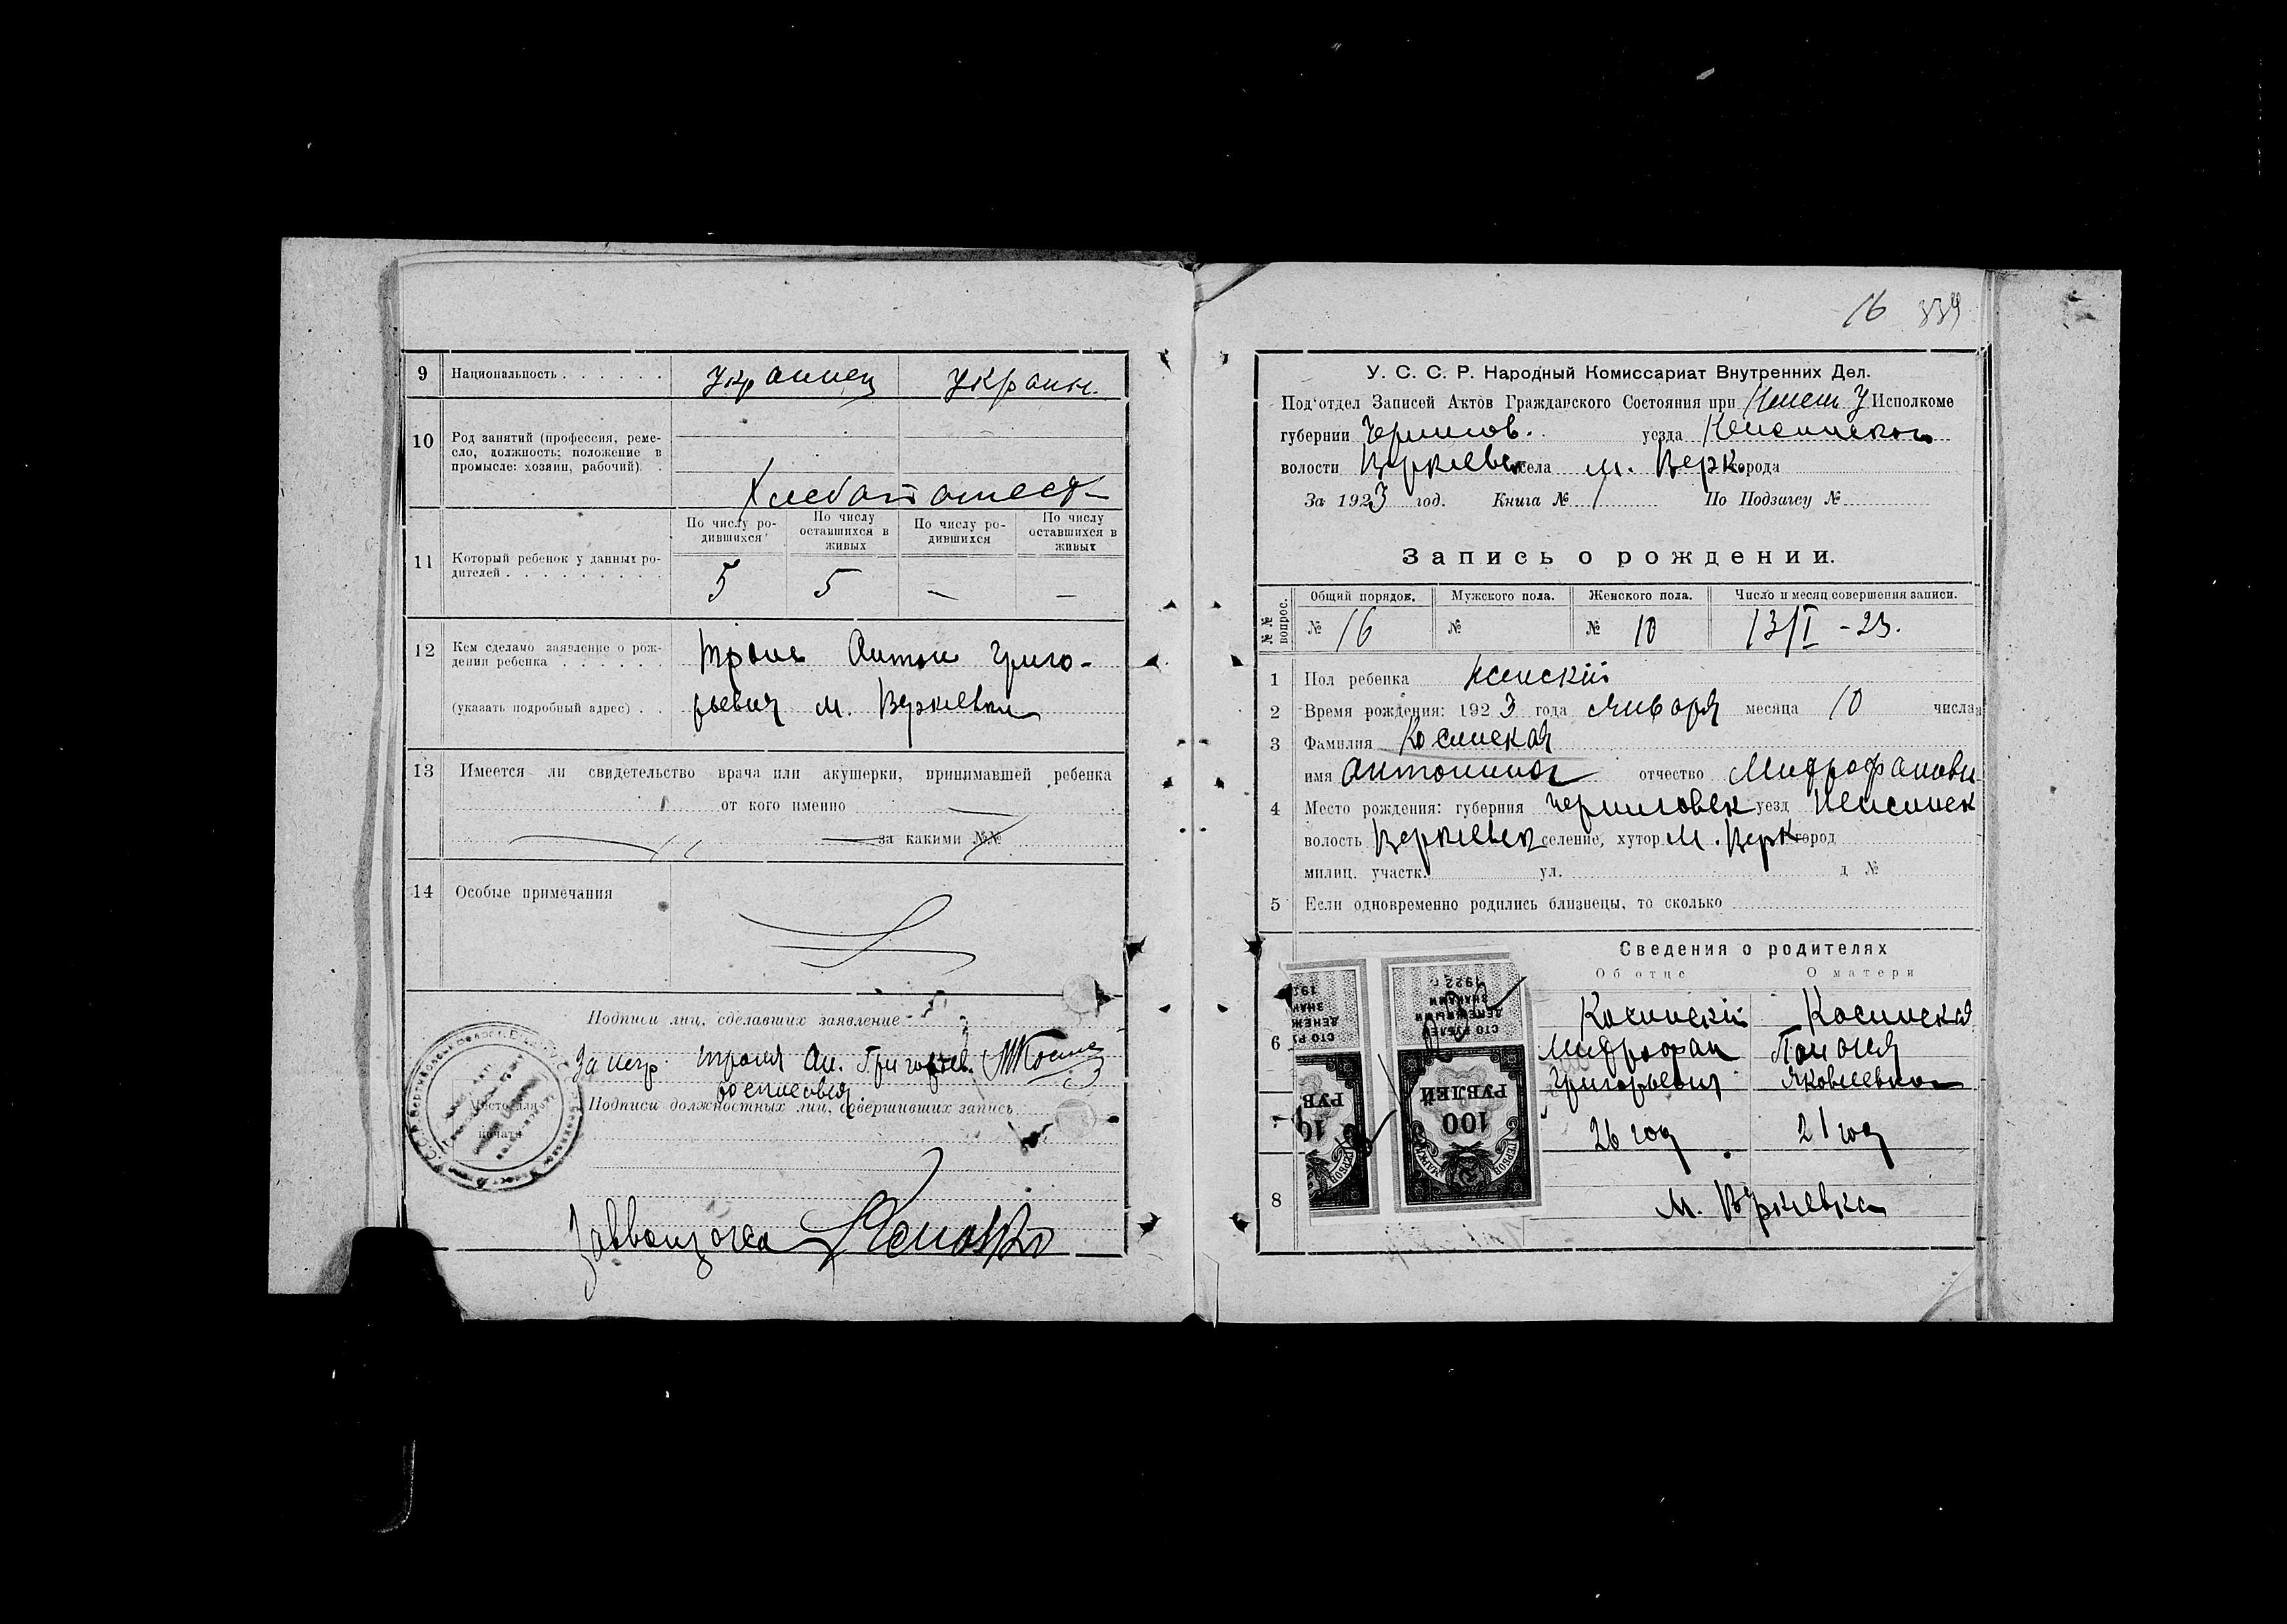 9 Национальность . . . . . . Украинец Украин.
10 Род занятий (профессия, реме-
сло, должность: положение в
промысле: хозяин, рабочий). .
Хлебопашест
11 Который ребенок у данных ро-
дителей . . . . . . . . .
По числу ро-
дившихся
По числу
оставшихся в
живых
По числу ро-
дившихся
По числу
оставшихся в
живых
5 5 — —
12 Кем сделано заявление о рож-
дении ребенка . . . . . .
Антон Григо-
(указать подробный адрес) . . рьевич м. Веркиевка
13 Имеется ли свидетельство врача или акушерки, принимавшей ребенка
от кого именно
за какими №№
14 Особые примечания
Подписи лиц, сделавших заявление
За негр. Ан. Григорьев.
Подписи должностных лиц, совершивших запись
Место для
печати
16 339
У. С. С. Р. Народный Комиссариат Внутренних Дел.
Под'отдел Записей Актов Гражданского Состояния при Нежин У Исполкоме
губернии Чернигов. уезда Неженского
волости Веркиевск села м. Верк. города
За 1923 год. Книга № 1 По Подзагсу №
Запись о рождении.
№ № вопрос.
Общий порядок. Мужского пола. Женского пола. Число и месяц совершения записи.
№ 16 № № 10 13/I - 23.
1 Пол ребенка женский
2 Время рождения: 1923 года января месяца 10 числа
3 Фамилия Косинская
имя Антонина отчество Митрофанови
4 Место рождения: губерния Черниговск уезд Неженск
волость Веркиевск селение, хутор м. Верк город
милиц. участк. ул. д №
5 Если одновременно родились близнецы, то сколько
Сведения о родителях
Об отце О матери
6 Косинский Косинская
Митрофан
Григорьевич Яковлевна
7 26 год 21 год
8 м. Веркиевка
СТО РУБЛЕЙ
ДЕНЕЖНЫМИ
ЗНАКАМИ
1922 г.
РУБЛЕЙ
100
ГЕРБОВ
МАРКА